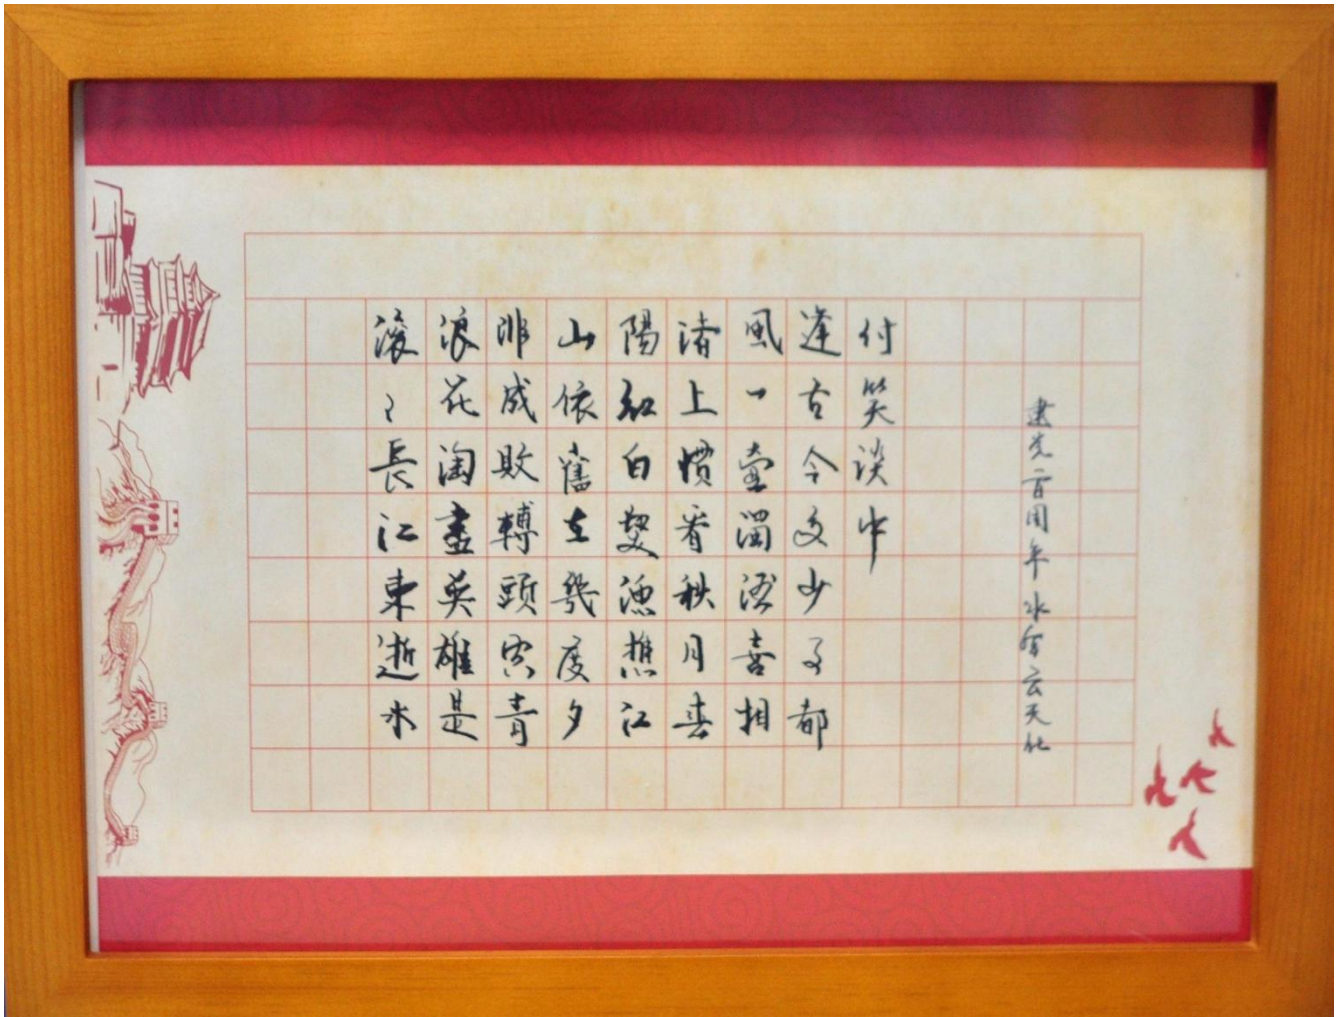 滚々長江東逝水
浪花淘盡英雄是
非成敗轉頭空青
山依舊在幾度夕
陽紅白髮漁樵江
渚上惯看秋月春
風一壺濁酒喜相
逢古今多少事都
付笑談中
建党一百周年水富云天化